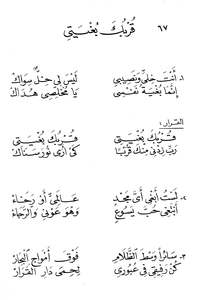 ٦٧ قُرْبُكَ بُغْيَتِي
١. أَنْتَ خِلِّي وَنَصِيبِي لَيْسَ لِي خِلٌّ سِوَاكْ
إِنَّمَا بُغْيَةُ نَفْسِي يَا مُخَلِّصِي هُدَاكْ
القرار:
قُرْبُكَ بُغْيَتِي قُرْبُكَ بُغْيَتِي
رَبِّ زِدْنِي مِنْكَ قُرْبًا كَيْ أَرَى نُورَ سَنَاكْ
٢. لَسْتُ أَبْغِي أَيَّ مَجْدٍ عَالَمِيٍّ أَوْ رَجَاءْ
أَبْتَغِي حُبَّ يَسُوعَ وَهْوَ عَوْنِي وَالرَّجَاءْ
٣. سَائِرًا وَسْطَ الظَّلَامِ فَوْقَ أَمْوَاجِ الْبِحَارْ
كُنْ رَفِيقِي فِي عُبُورِي لِحِمَى دَارِ الْقَرَارْ